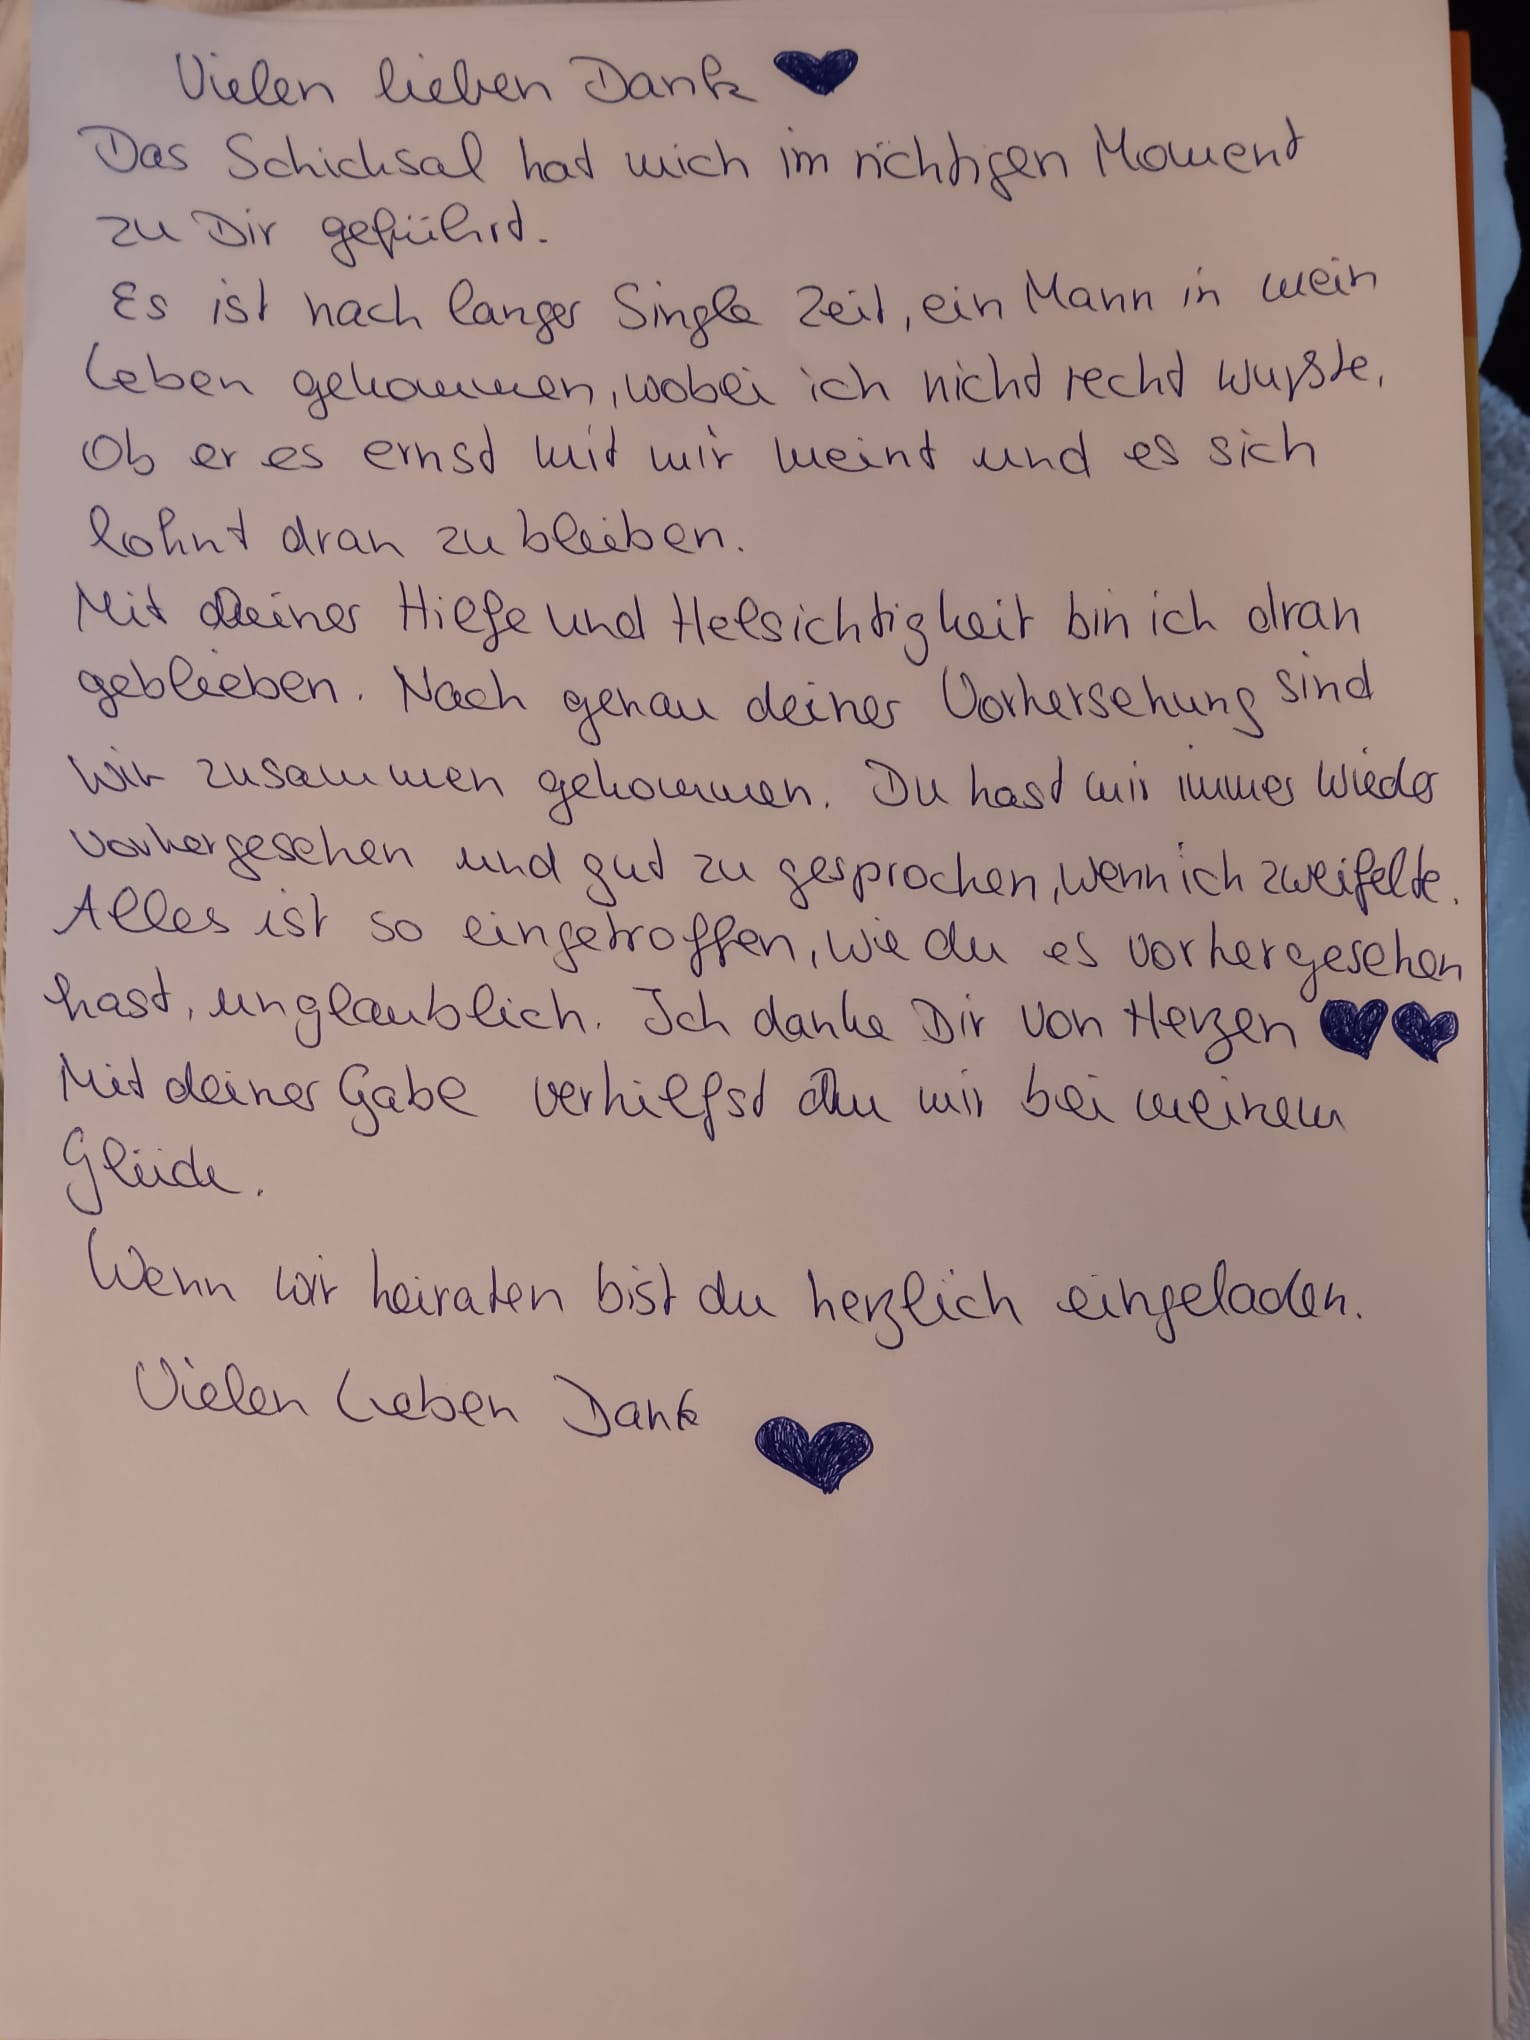 Vielen lieben Dank
Das Schicksal hat mich im richtigen Moment
zu Dir geführt.
Es ist nach langer Single Zeit, ein Mann in mein
Leben gekommen, wobei ich nicht recht wußte,
Ob er es ernst mit mir meint und es sich
lohnt dran zu bleiben.
Mit deiner Hilfe und Helsichtigkeit bin ich dran
geblieben. Nach genau deiner Vorhersehung sind
wir zusammen gekommen. Du hast mir immer wieder
vorhergesehen und gut zu gesprochen, wenn ich zweifelte.
Alles ist so eingetroffen, wie du es vorhergesehen
hast, unglaublich. Ich danke Dir von Herzen
Mit deiner Gabe verhilfst du mir bei meinem
Glück.
Wenn wir heiraten bist du herzlich eingeladen.
Vielen Lieben Dank